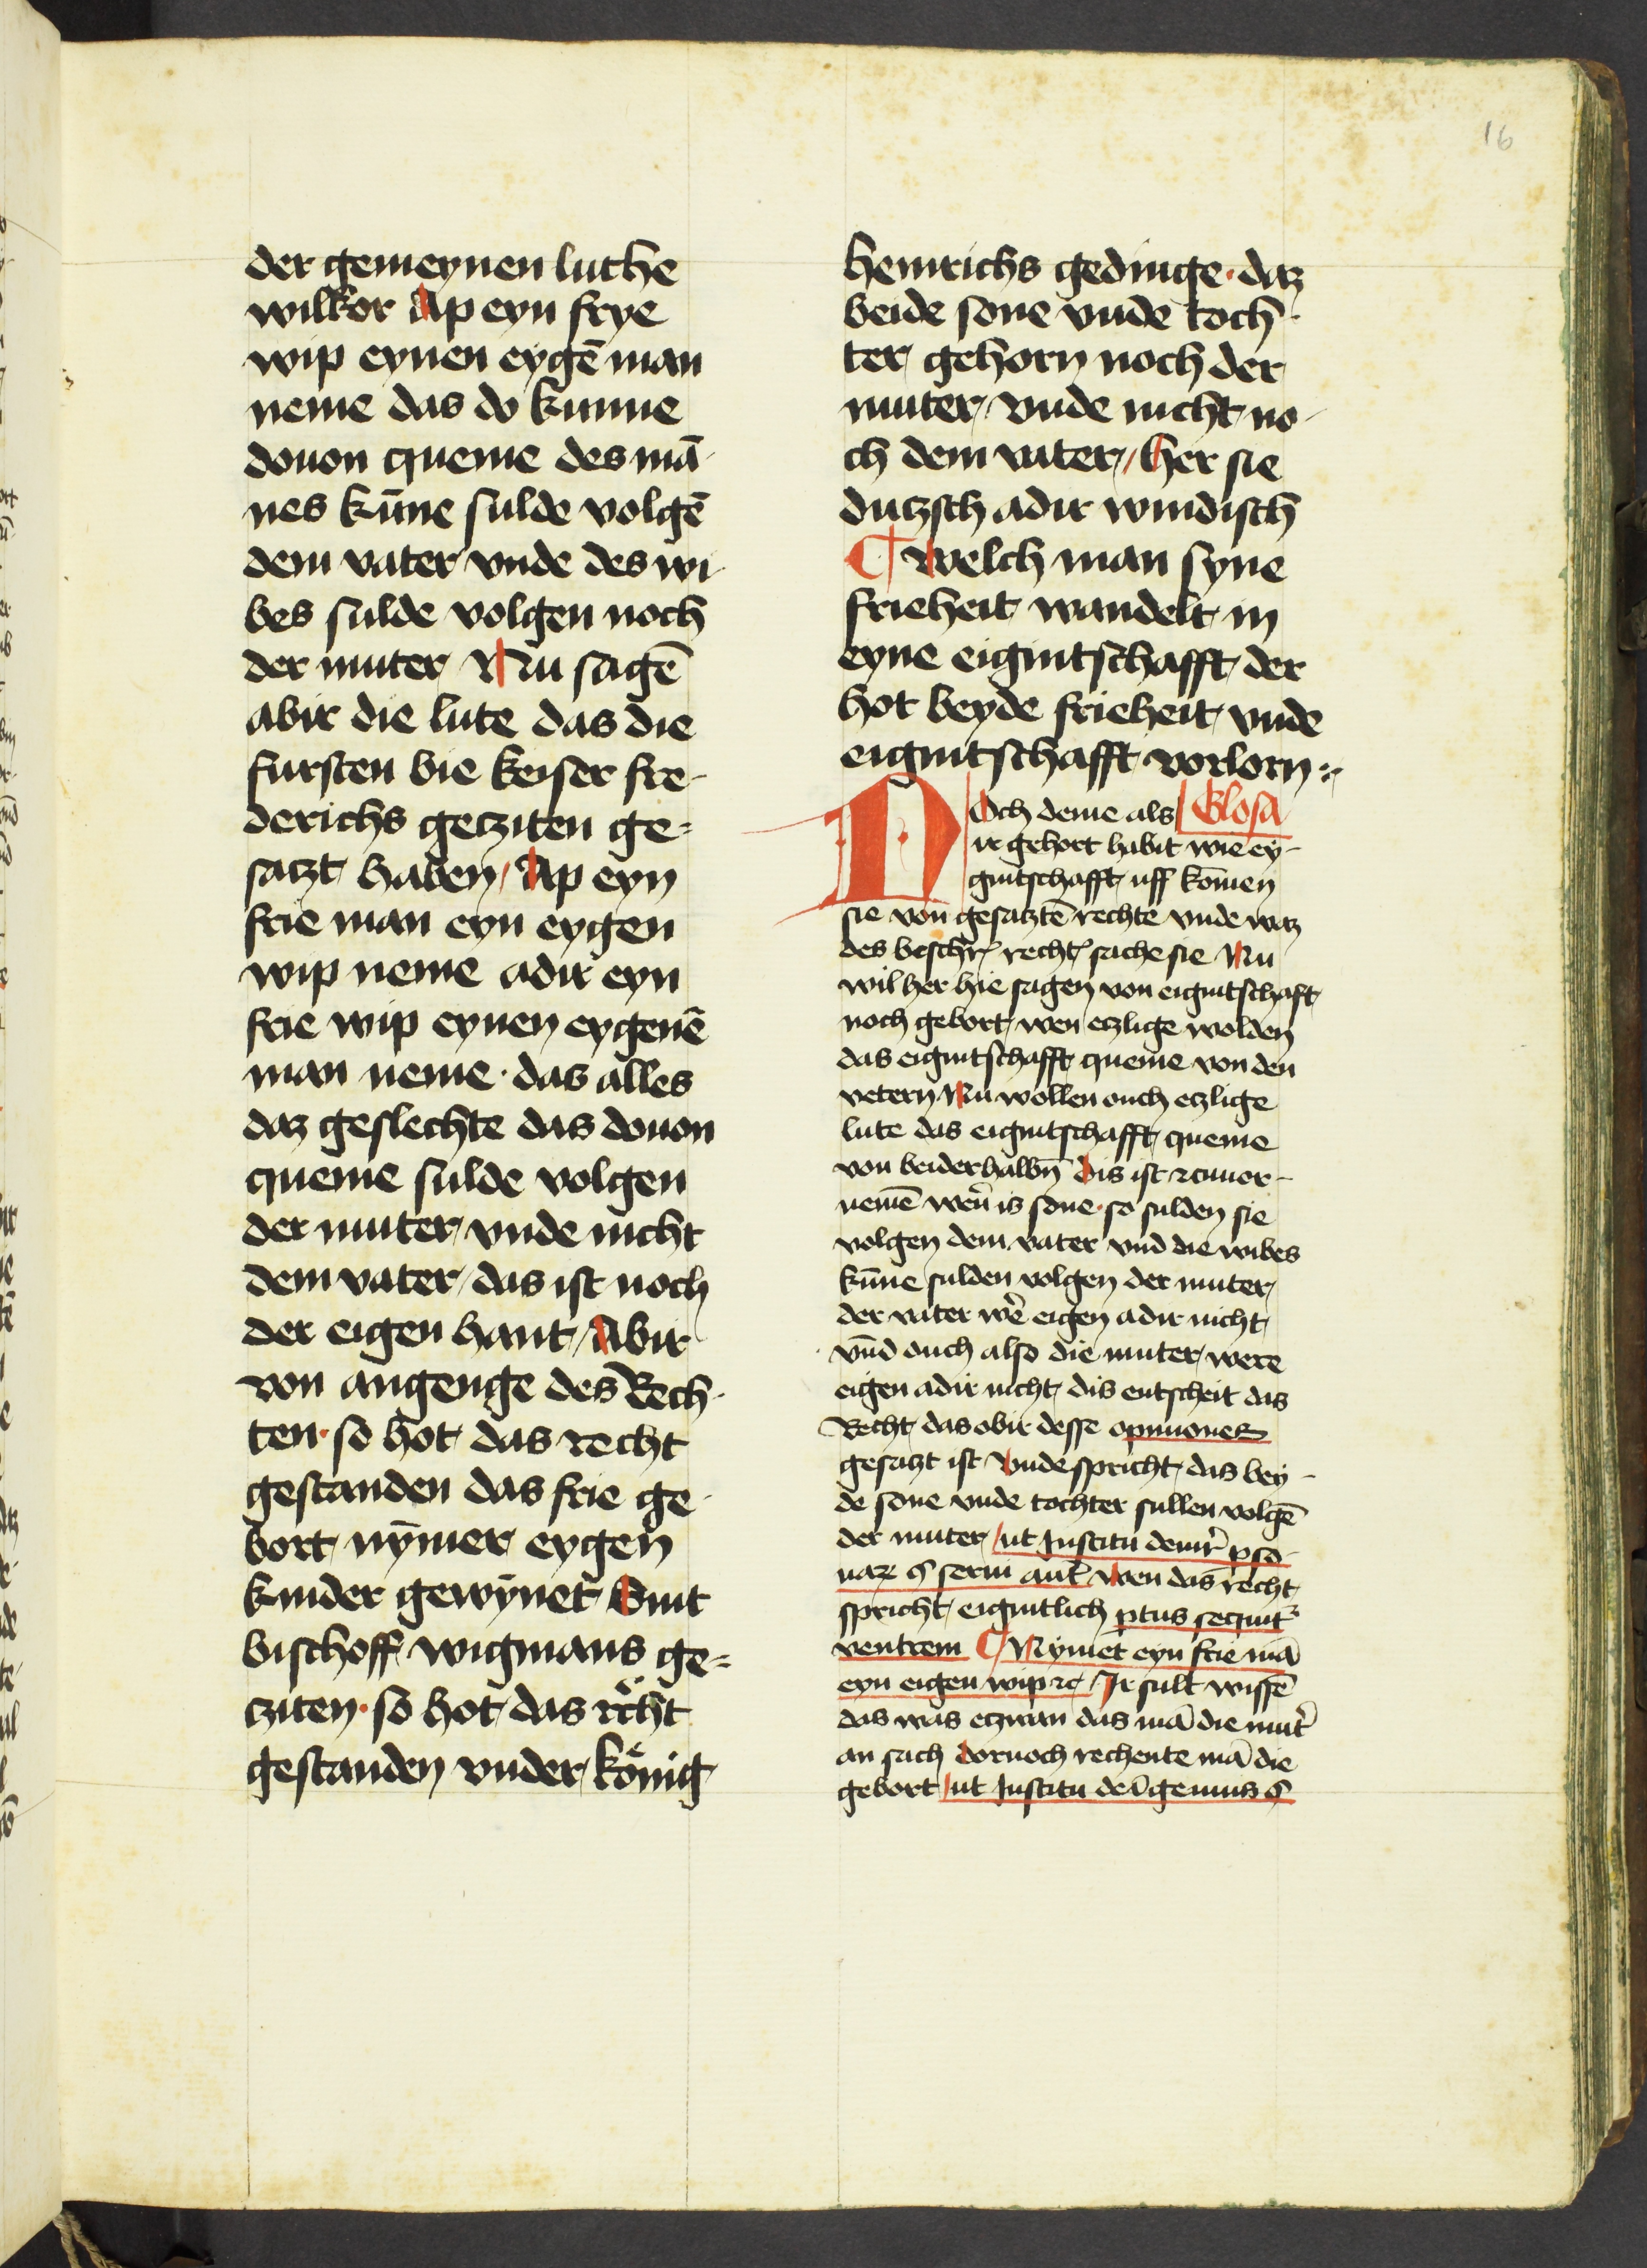 16
der gemeynen luthe
wilkor Ap eyn frye
wip eynen eygē man
neme das do kunne
douon queme des mā-
nes kūne sulde volgē
dem vater vnde des wi-
bes sulde volgen noch
der muter Nu sagē
abir die lute das die
fursten bie keiser fre-
derichs getziten ge-
satzt haben / Ap eyn
frie man eyn eygen
wip neme adir eyn
frie wip eynen eygenē
man neme · das alles
daz geslechte das douon
queme sulde volgen
der muter vnde nicht
dem vater / das ist noch
der eigen hant / Abir
von angenge des Rech-
ten · so hot das recht
gestanden das frie ge-
bort nȳmer eygen
kinder gewȳnet Sint
bischoff wigmans ge-
cziten · so hot das recht
gestanden vnder könig
heinrichs gedinge · daz
beide sone vnde toch-
ter gehorn noch der
muter / vnde nicht no-
ch dem vater // her sie
dutzsch adir windisch
¶ Welch man syne
frieheit wandelt in
eyne eigintschafft der
hot beyde frieheit vnde
eigintschafft vorlorn :~
NOch deme als Glosa
ir gehort habit wie ey-
gintschafft uff komen
sie von gesatztē rechte vnde waz
des beschr recht sache sie Nu
wil her hie sagen von eigintschaft
noch gebort wen etzlige wolden
das eigintschafft queme von den
vetern Nu wollen ouch etzlige
lute das eigintschafft queme
von beiderhalbn̄ dis ist
nemē is sone · so sulden sie
volgen dem vater vnd die wibes
kūne sulden volgen der muter
der vater wē eigen adir nicht
vn̄d ouch also die muter were
eigen adir nicht / dis entscheit das
Recht das obir desse opiniones
gesatzt ist Vnde spricht das bey-
de sone vnde tochter sullen volgē
der muter / ut Institu de
§ serui aut̄ Wen das recht
spricht eigintlich ptus sequit
ventrem ¶ Nymet eyn frie mā
eyn eigen wip ꝛc / Ir sult wissē
das was etzwan das mā die mut
an sach dornoch rechente mā die
gebort / ut Institu de īgenuis §